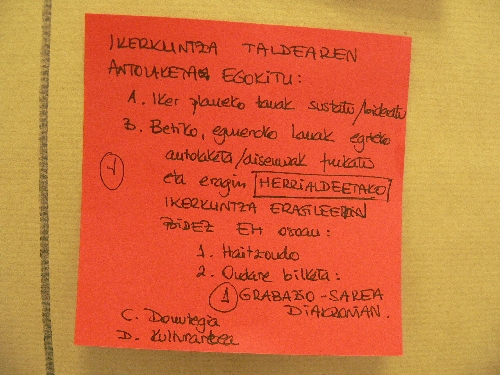 IKERKUNTZA TALDEAREN
ANTOLAKETA EGOKITU:
A. Iker planeko lanak sustatu/bideratu
B. Betiko, eguneroko lanak egiteko
antolaketa/diseinuak finkatu
4
eta eragin HERRIALDEETAKO
IKERKUNTZA ERAGILEEKIN
BIDEZ EH osoan:
1. Haitzondo
2. Ondare bilketa:
1 GRABAZIO-SAREA
DIAKRONIAN.
C. Donutegia
D. Kulturartea